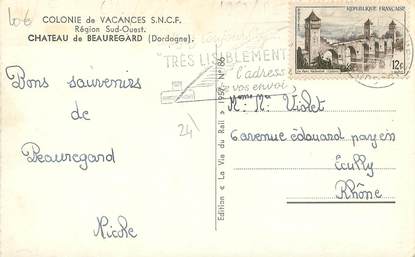 606
COLONIE de VACANCES S.N.C.F.
Région Sud-Ouest.
CHATEAU de BEAUREGARD (Dordogne).
RÉPUBLIQUE FRANÇAISE
12F
"TRÈS LISIBLEMENT
l'adresse
de vos envois
Bons souvenirs
de
Beauregard
Nicole
24
Edition « La Vie du Rail » 1957. N° 66
M. Me Violet
6 avenue édouard payen
Ecully
Rhône